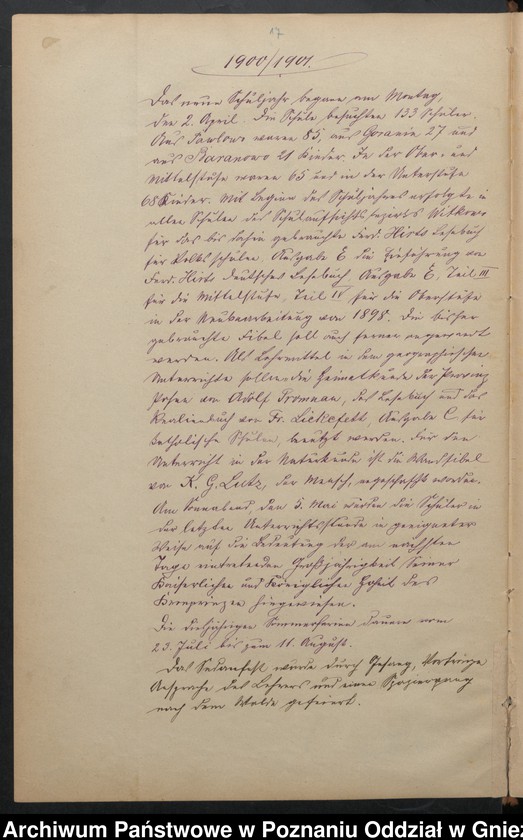 17
1900/1901.
Das neue Schuljahr begann am Montag,
den 2. April. Die Schule besuchten 133 Schüler.
Aus Pawlowo waren 85, aus Goranin 27 und
aus Baranowo 21 Kinder. In der Ober- und
Mittelstufe waren 65 und in der Unterstufe
68 Kinder. Mit Beginn des Schuljahres erfolgte in
allen Schulen des Schulaufsichtsbezirks Witkowo
für das bis dahin gebrauchte Ferd. Hirts Lesebuch
für Volksschulen, Ausgabe E die Einführung von
Ferd. Hirts Deutsches Lesebuch, Ausgabe E, Teil III
für die Mittelstufe, Teil IV für die Oberstufe
in der Neubearbeitung von 1898. Die bisher
gebrauchte Fibel soll auch ferner angewandt
werden. Als Lehrmittel in dem geographischen
Unterrichte sollen die Heimatkunde der Provinz
Posen von Adolf Tromnau, das Lesebuch und das
Realienbuch von Fr. Lickefett, Ausgabe C für
katholische Schulen, benutzt werden. Für den
Unterricht in der Naturkunde ist die Wandfibel
von K. G. Lutz, der Mensch, angeschafft worden.
Am Sonnabend, den 5. Mai wurden die Schüler in
der letzten Unterrichtsstunde in geeigneter
Weise auf die Bedeutung der am nächsten
Tage eintretenden Großjährigkeit Seiner
Kaiserlichen und Königlichen Hoheit des
Kronprinzen hingewiesen.
Die diesjährigen Sommerferien dauern vom
23. Juli bis zum 11. August.
Das Sedanfest wurde durch Gesang, Vorträge
Ansprache des Lehrers und einen Spaziergang
nach dem Walde gefeiert.
Archiwum Państwowe w Poznaniu Oddział w Gnie